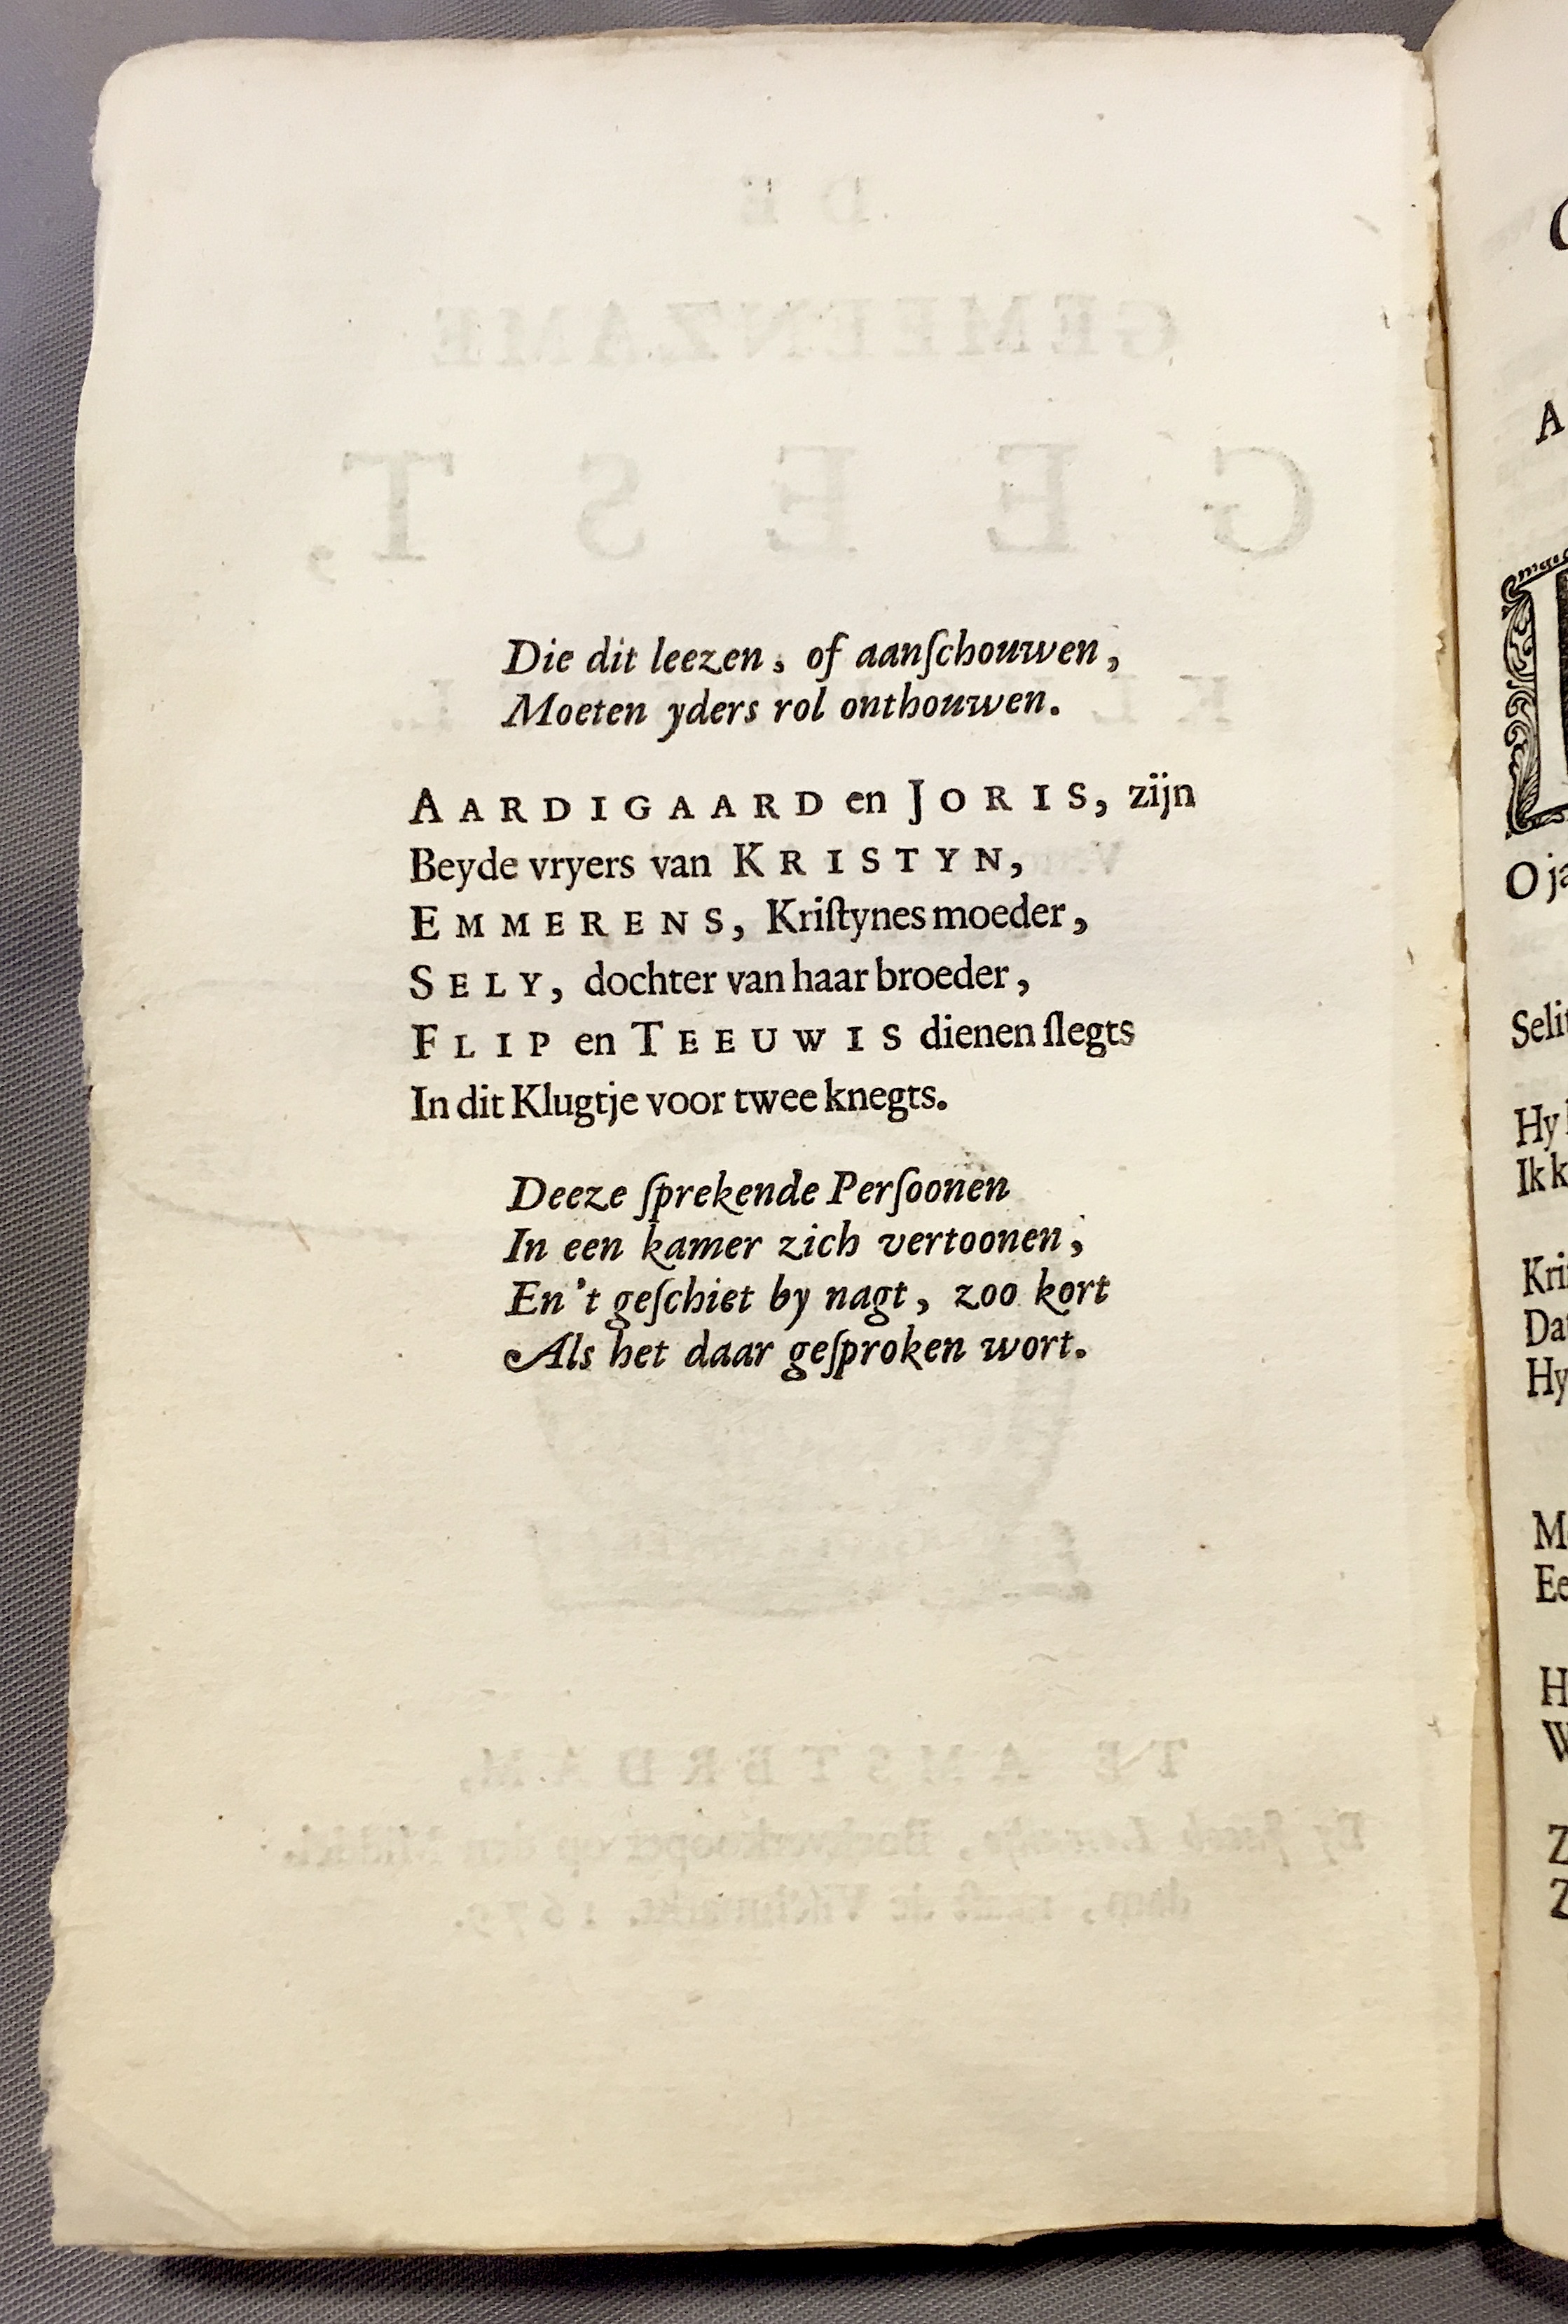 Die dit leezen, of aanſchouwen,
Moeten yders rol onthouwen.
AARDIGAARD en JORIS, zijn
Beyde vryers van KRISTYN,
EMMERENS, Kriſtynes moeder,
SELY, dochter van haar broeder,
FLIP en TEEUWIS dienen ſlegts
In dit Klugtje voor twee knegts.
Deeze ſprekende Perſoonen
In een kamer zich vertoonen,
En't geſchiet by nagt, zoo kort
Als het daar geſproken wort.
DE
GEMEENZAME
GEEST,
TE AMSTERDAM,
A
O
Hy
Ik
Hy